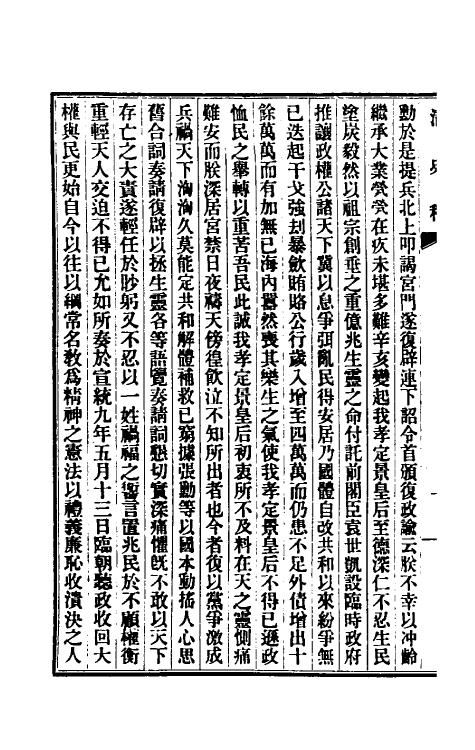 清史稿
勳於是提兵北上叩謁宮門遂復辟連下詔令首頒復政諭云朕不幸以冲齡
繼承大業煢煢在疚未堪多難辛亥變起我孝定景皇后至德深仁不忍生民
塗炭毅然以祖宗創垂之重億兆生靈之命付託前閣臣袁世凱設臨時政府
推讓政權公諸天下冀以息爭弭亂民得安居乃國體自改共和以來紛爭無
已迭起干戈強刦暴斂賄賂公行歲入增至四萬萬而仍患不足外債增出十
餘萬萬而有加無已海內囂然喪其樂生之氣使我孝定景皇后不得已遜政
恤民之舉轉以重苦吾民此誠我孝定景皇后初衷所不及料在天之靈惻痛
難安而朕深居宮禁日夜禱天徬徨飲泣不知所出者也今者復以黨爭激成
兵禍天下洶洶久莫能定共和解體補救已窮據張勳等以國本動搖人心思
舊合詞奏請復辟以拯生靈各等語覽奏請詞懇切實深痛懼旣不敢以天下
存亡之大責遂輕任於眇躬又不忍以一姓禍福之讆言置兆民於不顧權衡
重輕天人交迫不得已允如所奏於宣統九年五月十三日臨朝聽政收回大
權與民更始自今以往以綱常名敎爲精神之憲法以禮義廉恥收潰決之人